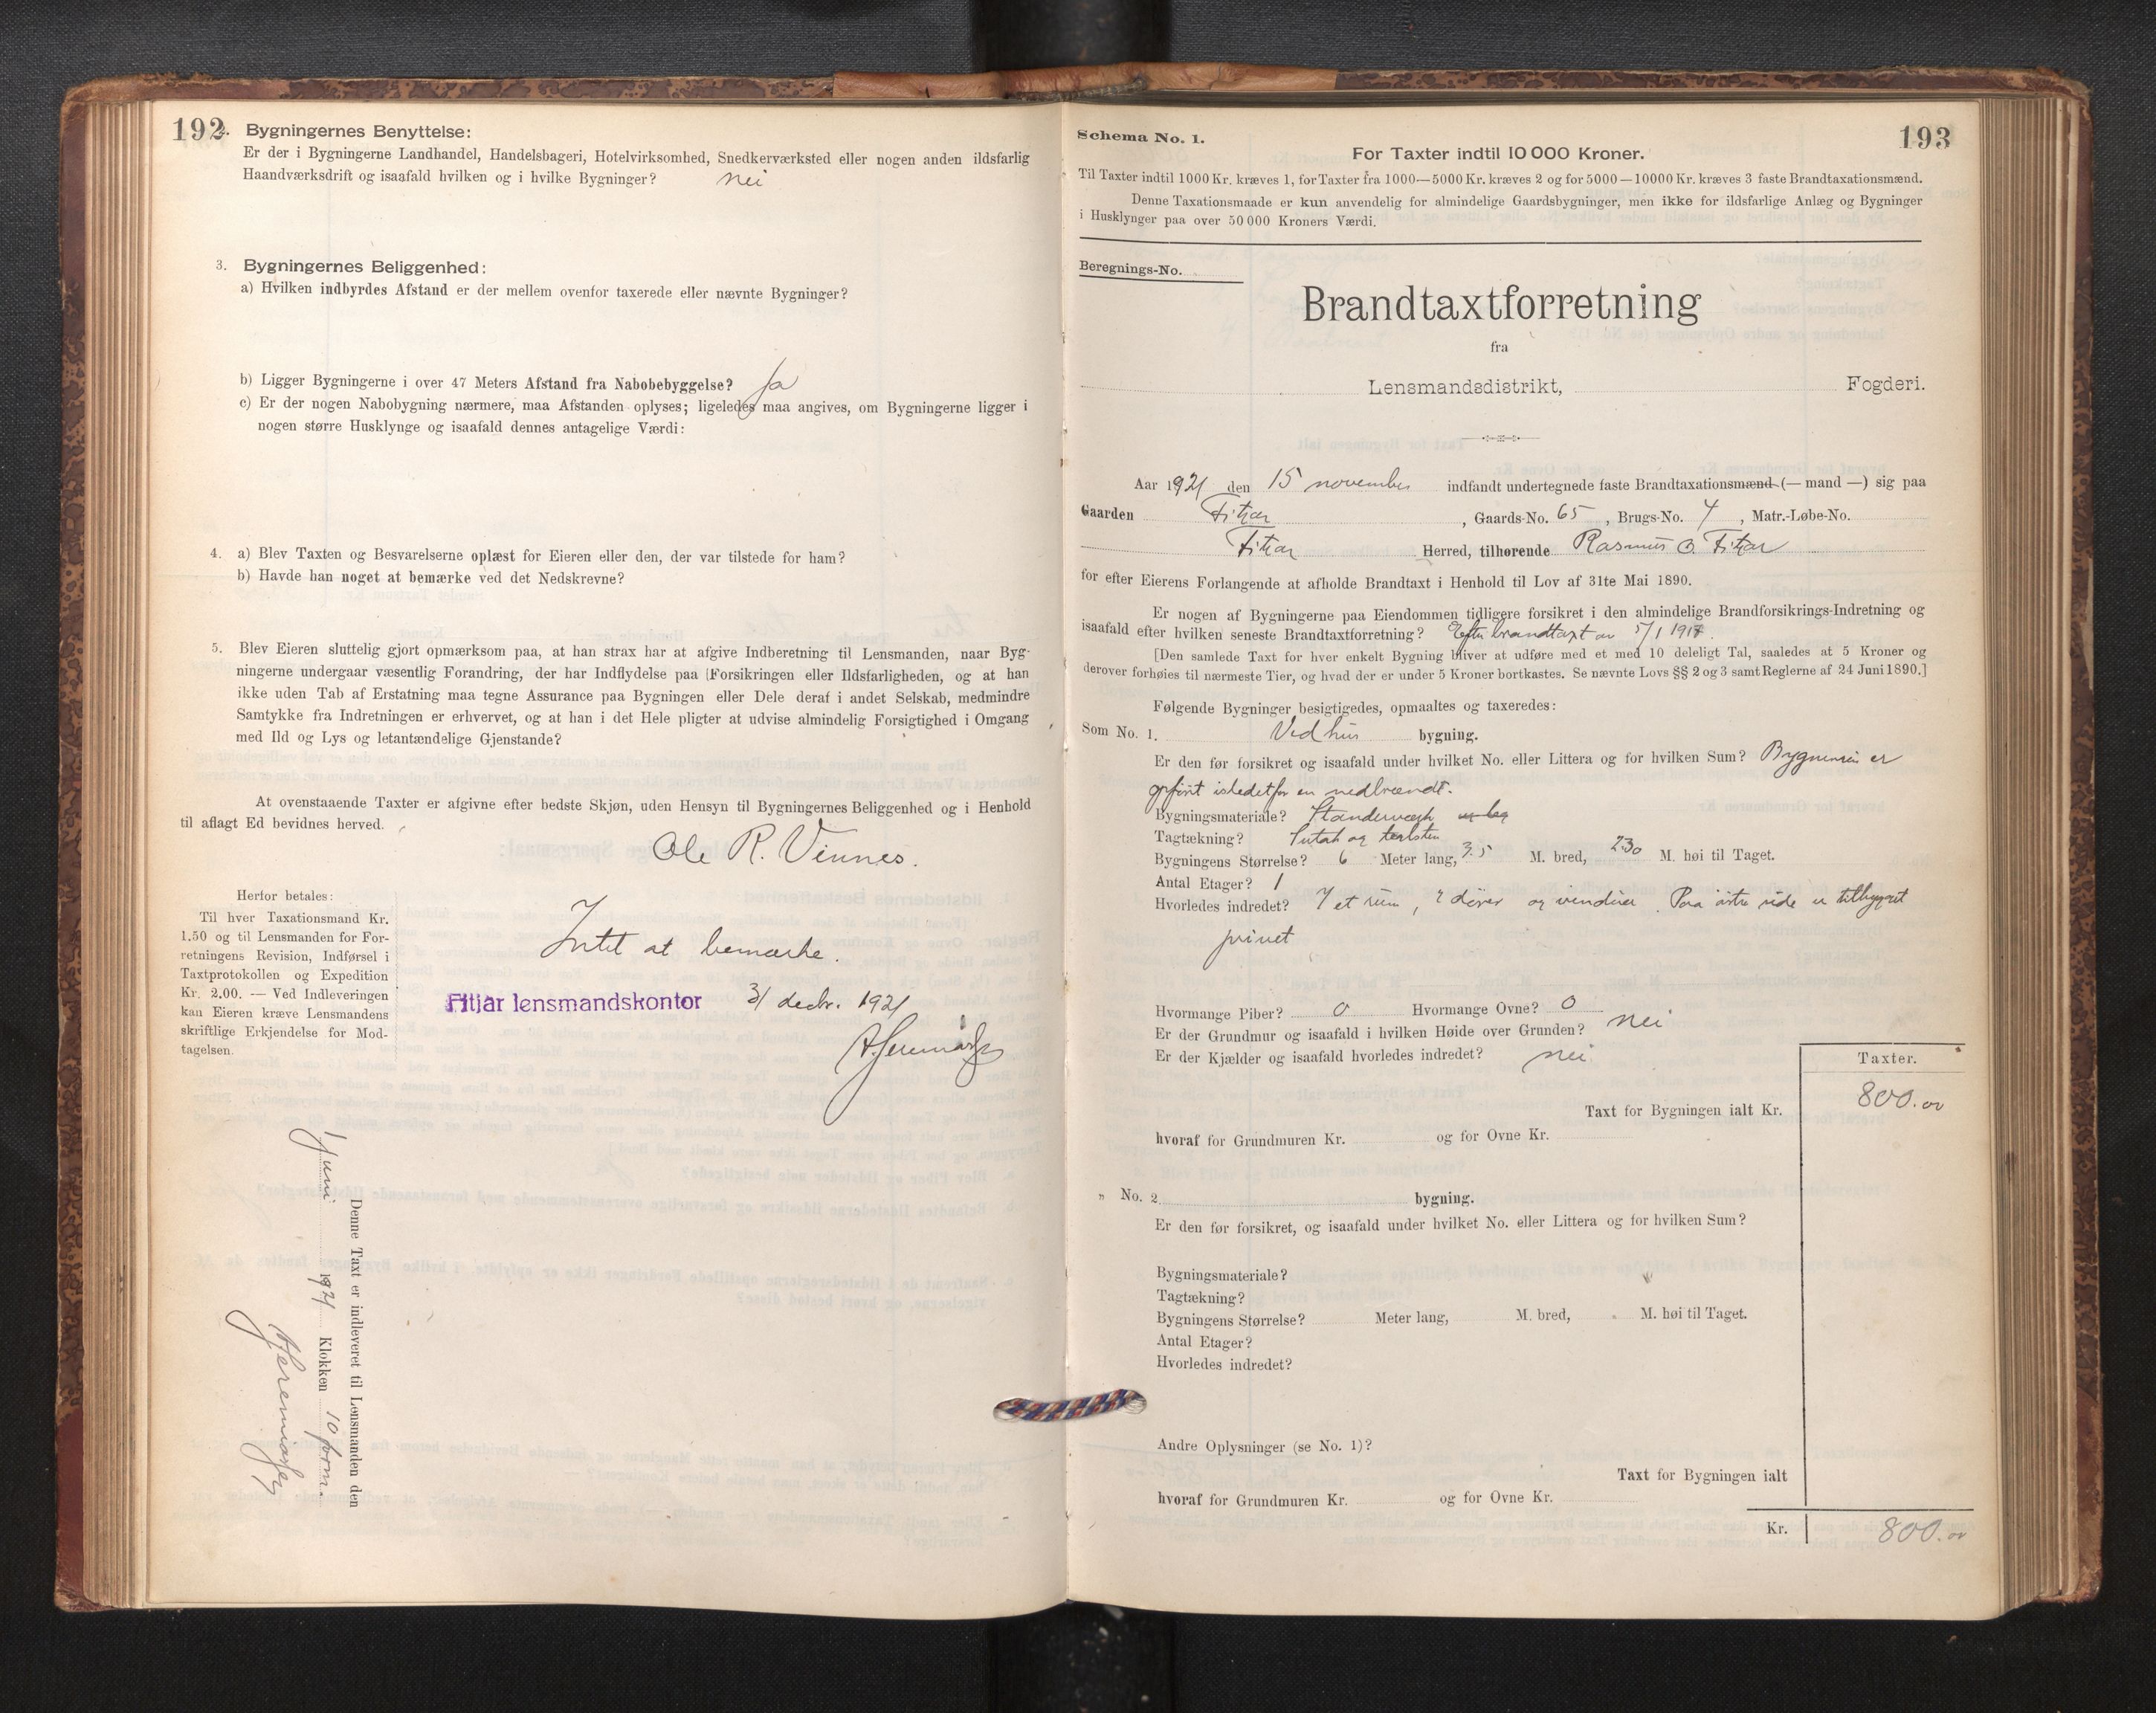 192
2. Bygningernes Benyttelse:
Er der i Bygningerne Landhandel, Handelsbageri, Hotelvirksomhed, Snedkerværksted eller nogen anden ildsfarlig
Haandværksdrift og isaafald hvilken og i hvilke Bygninger? nei
3. Bygningernes Beliggenhed:
a) Hvilken indbyrdes Afstand er der mellem ovenfor taxerede eller nævnte Bygninger?
b) Ligger Bygningerne i over 47 Meters Afstand fra Nabobebyggelse? Ja
c) Er der nogen Nabobygning nærmere, maa Afstanden oplyses; ligeledes maa angives, om Bygningerne ligger i
nogen større Husklynge og isaafald dennes antagelige Værdi:
4. a) Blev Taxten og Besvarelserne oplæst for Eieren eller den, der var tilstede for ham?
b) Havde han noget at bemærke ved det Nedskrevne?
5. Blev Eieren sluttelig gjort opmærksom paa, at han strax har at afgive Indberetning til Lensmanden, naar Byg-
ningerne undergaar væsentlig Forandring, der har Indflydelse paa [Forsikringen eller Ildsfarligheden, og at han
ikke uden Tab af Erstatning maa tegne Assurance paa Bygningen eller Dele deraf i andet Selskab, medmindre
Samtykke fra Indretningen er erhvervet, og at han i det Hele pligter at udvise almindelig Forsigtighed i Omgang
med Ild og Lys og letantændelige Gjenstande?
At ovenstaaende Taxter er afgivne efter bedste Skjøn, uden Hensyn til Bygningernes Beliggenhed og i Henhold
til aflagt Ed bevidnes herved.
Ole R. Vinnes.
Herfor betales:
Til hver Taxationsmand Kr.
1.50 og til Lensmanden for For-
retningens Revision, Indførsel i
Taxtprotokollen og Expedition
Kr. 2.00. — Ved Indleveringen
kan Eieren kræve Lensmandens
skriftlige Erkjendelse for Mod-
tagelsen.
Intet at bemærke.
Fitjar lensmandskontor 31 decbr. 1921
Denne Taxt er indleveret til Lensmanden den
juni 1921 Klokken 10 form.
193
Schema No. 1.
For Taxter indtil 10 000 Kroner.
Til Taxter indtil 1000 Kr. kræves 1, for Taxter fra 1000—5000 Kr. kræves 2 og for 5000—10000 Kr. kræves 3 faste Brandtaxationsmænd.
Denne Taxationsmaade er kun anvendelig for almindelige Gaardsbygninger, men ikke for ildsfarlige Anlæg og Bygninger
i Husklynger paa over 50 000 Kroners Værdi.
Beregnings-No.
Brandtaxtforretning
fra
Lensmandsdistrikt, Fogderi.
Aar 1921 den 15 november indfandt undertegnede faste Brandtaxationsmænd (— mand —) sig paa
Gaarden Fitjar, Gaards-No. 65, Brugs-No. 4, Matr.-Løbe-No.
Fitjar Herred, tilhørende Rasmus O. Fitjar
for efter Eierens Forlangende at afholde Brandtaxt i Henhold til Lov af 31te Mai 1890.
Er nogen af Bygningerne paa Eiendommen tidligere forsikret i den almindelige Brandforsikrings-Indretning og
isaafald efter hvilken seneste Brandtaxtforretning? Efter brandtaxt av 5/1 1917.
[Den samlede Taxt for hver enkelt Bygning bliver at udføre med et med 10 deleligt Tal, saaledes at 5 Kroner og
derover forhøies til nærmeste Tier, og hvad der er under 5 Kroner bortkastes. Se nævnte Lovs §§ 2 og 3 samt Reglerne af 24 Juni 1890.]
Følgende Bygninger besigtigedes, opmaaltes og taxeredes:
Som No. 1. Vedhus bygning.
Er den før forsikret og isaafald under hvilket No. eller Littera og for hvilken Sum? Bygningen er
opført istedetfor en nedbrændt.
Bygningsmateriale? Standervægh
Tagtækning? Sutak og teglsten
Bygningens Størrelse? 6 Meter lang, 3.5 M. bred, 2.30 M. høi til Taget.
Antal Etager? 1
Hvorledes indredet? I et rum, 2 dører og vinduer. Paa østre side er tilbygget
privet
Hvormange Piber? 0 Hvormange Ovne? 0
Er der Grundmur og isaafald i hvilken Høide over Grunden? nei
Er der Kjælder og isaafald hvorledes indredet? nei
Taxter.
Taxt for Bygningen ialt Kr. 800.00
hvoraf for Grundmuren Kr. og for Ovne Kr.
" No. 2. bygning.
Er den før forsikret, og isaafald under hvilket No. eller Littera og for hvilken Sum?
Bygningsmateriale?
Tagtækning?
Bygningens Størrelse? Meter lang, M. bred, M. høi til Taget.
Antal Etager?
Hvorledes indredet?
Andre Oplysninger (se No. 1)?
Taxt for Bygningen ialt
hvoraf for Grundmuren Kr. og for Ovne Kr.
Kr. 800.00